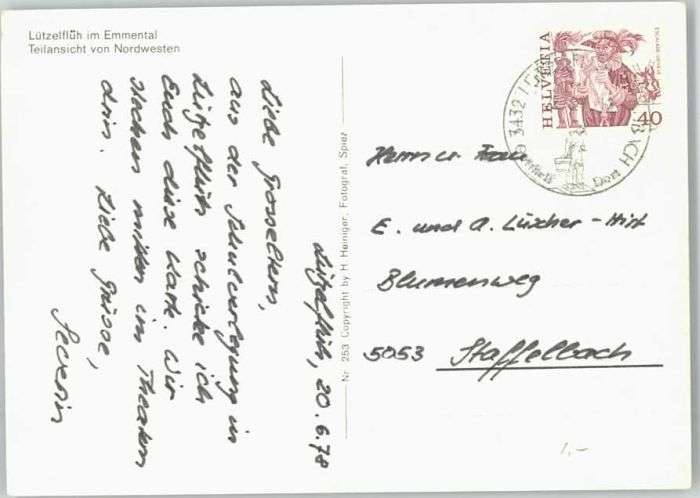 Lützelflüh im Emmental
Teilansicht von Nordwesten
Lützelflüh, 20.6.78
Liebe Grosseltern,
aus der Schulverlegung in
Lützelflüh schicke ich
Euch diese Karte. Wir
stecken mitten im Theatern
drin. Liebe Grüsse,
Severin
Nr. 253 Copyright by H. Heiniger, Fotograf, Spiez
HELVETIA
40
3432
Dorf
Herrn u. Frau
E. und A. Lüscher-Hirt
Blumenweg
5053 Staffelbach
1.-